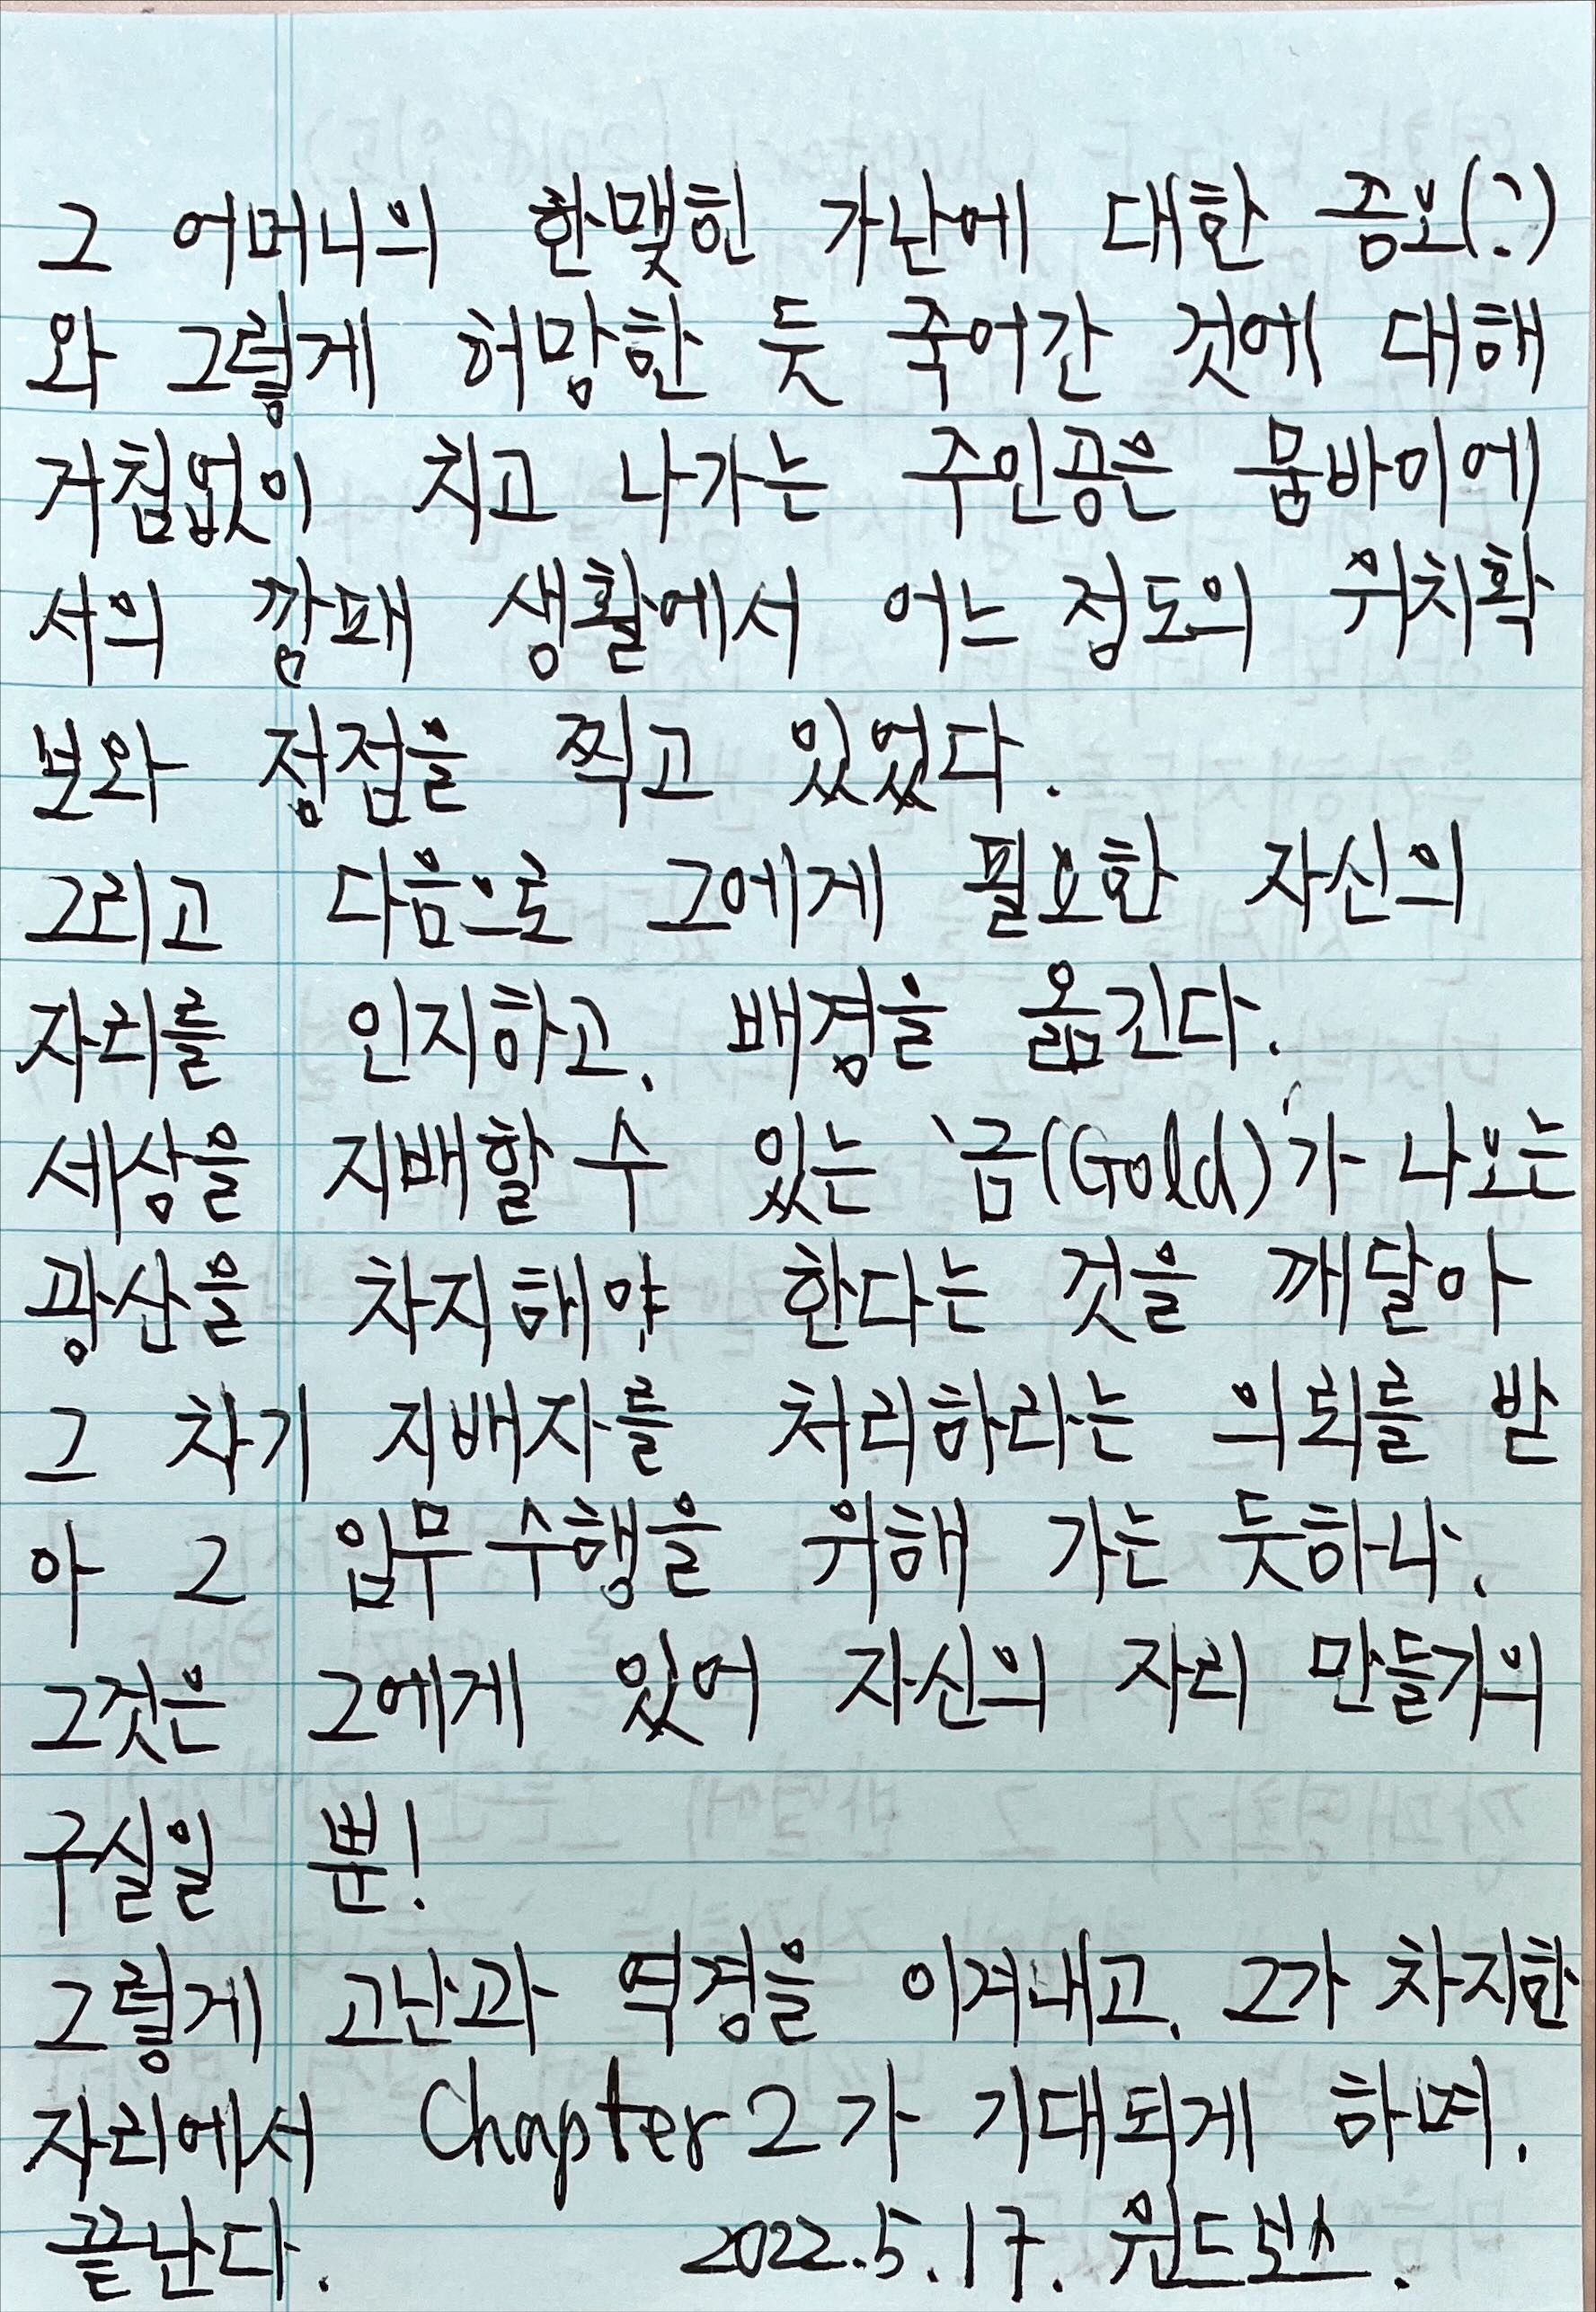 그 어머니의 한맺힌 가난에 대한 증오(?)
와 그렇게 허망한 듯 죽어간 것에 대해
거침없이 치고 나가는 주인공은 뭄바이에
서의 깡패 생활에서 어느 정도의 위치확
보와 정점을 찍고 있었다.
그리고 다음으로 그에게 필요한 자신의
자리를 인지하고, 배경을 옮긴다.
세상을 지배할 수 있는 '금(Gold)'가 나오는
광산을 차지해야 한다는 것을 깨달아
그 차기 지배자를 처리하라는 의뢰를 받
아 그 임무수행을 위해 가는 듯하나,
그것은 그에게 있어 자신의 자리 만들기의
구실일 뿐!
그렇게 고난과 역경을 이겨내고, 그가 차지한
자리에서 Chapter 2가 기대되게 하며,
끝난다. 2022.5.17. 윈드보스.